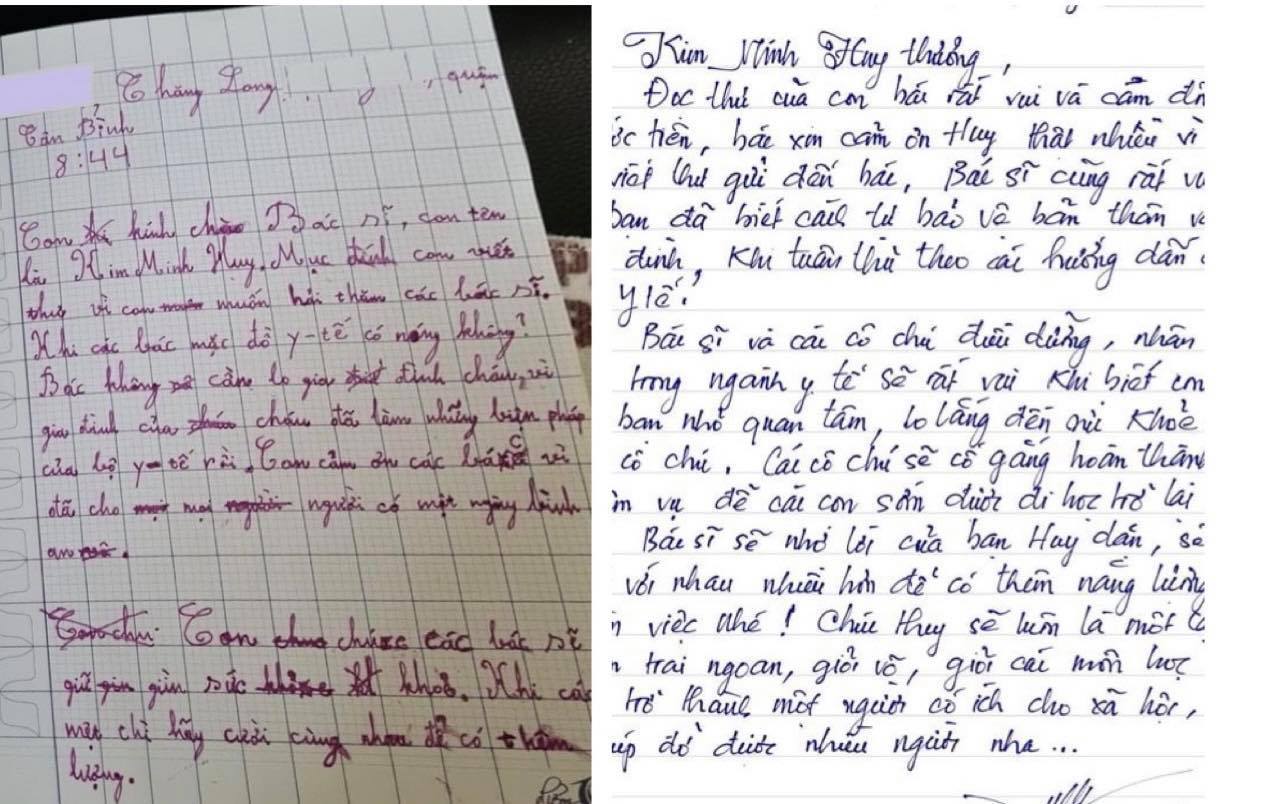 Thăng Long , quận
Tân Bình
8:44
Con kính chào Bác sĩ, con tên
là Kim Minh Huy. Mục đính con viết
thư vì con muốn hỏi thăm các bác sĩ.
Khi các bác mặc đồ y-tế có nóng không?
Bác không cần lo gia đình cháu, vì
gia đình của cháu đã làm những biện pháp
của bộ y-tế rồi. Con cảm ơn các bác vì
đã cho mọi người có một ngày lành
an.
Con chúc các bác sĩ
giữ gìn sức khoẻ. Khi các
mệt chỉ hãy cười cùng nhau để có thêm
lượng.
Kim Minh Huy thương,
Đọc thư của con bác rất vui và cảm độn
ớc tiên, bác xin cảm ơn Huy thật nhiều vì
viết thư gửi đến bác, Bác sĩ cũng rất vu
bạn đã biết cách tự bảo vệ bản thân v
đình, khi tuân thủ theo các hướng dẫn
y tế!
Bác sĩ và các cô chú điều dưỡng, nhân
trong ngành y tế sẽ rất vui khi biết em
bạn nhỏ quan tâm, lo lắng đến sức khoẻ
cô chú. Các cô chú sẽ cố gắng hoàn thàn
m vụ để các con sớm được đi học trở lại
Bác sĩ sẽ nhớ lời của bạn Huy dặn, sẽ
với nhau nhiều hơn để có thêm năng lượng
việc nhé! Chúc Huy sẽ luôn là một
trai ngoan, giỏi võ, giỏi các môn học
trở thành một người có ích cho xã hội,
úp đỡ được nhiều người nha...